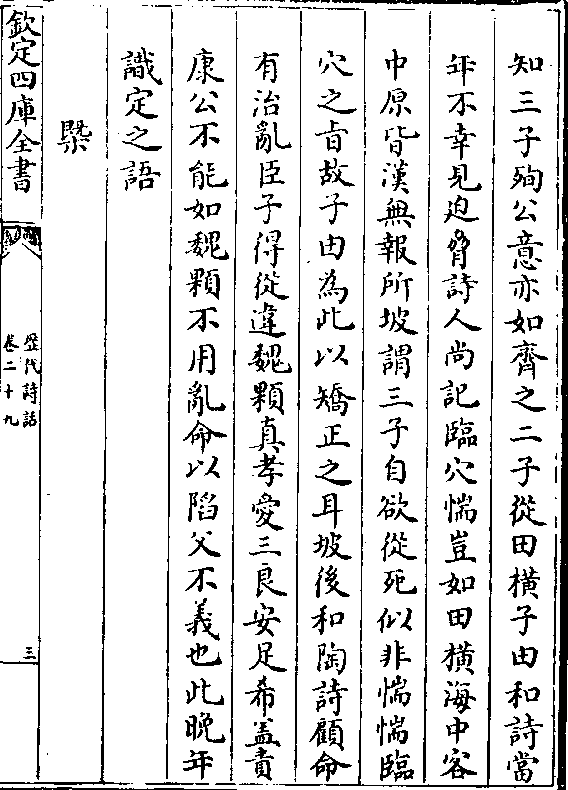 知三子殉公意亦如齊之二子從田橫子由和詩當
年不幸見迫脅詩人尚記臨穴惴豈如田橫海中客
中原皆漢無報所坡謂三子自欲從死似非惴惴臨
穴之旨故子由為此以矯正之耳坡後和陶詩顧命
有治亂臣子得從違魏顆真孝愛三良安足希盖責
康公不能如魏顆不用亂命以陷父不義也此晚年
識定之語
槩
欽定四庫全書
歷代詩話
卷二十九
三